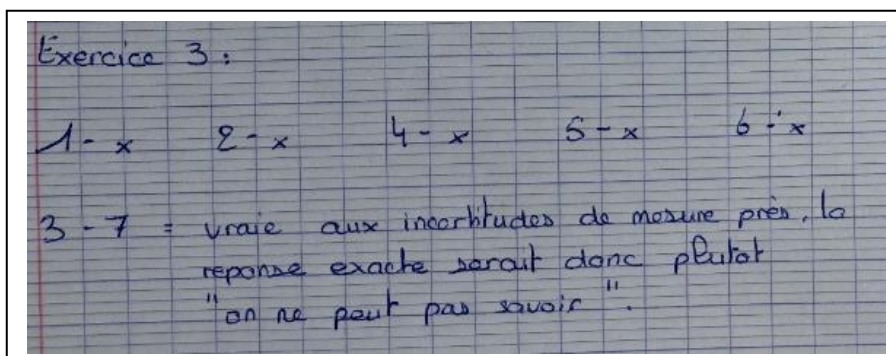 Exercice 3 :
1 - x 2 - x 4 - x 5 - x 6 - x
3 - 7 = vraie aux incertitudes de mesure près, la
reponse exacte serait donc plutot
"on ne peut pas savoir".